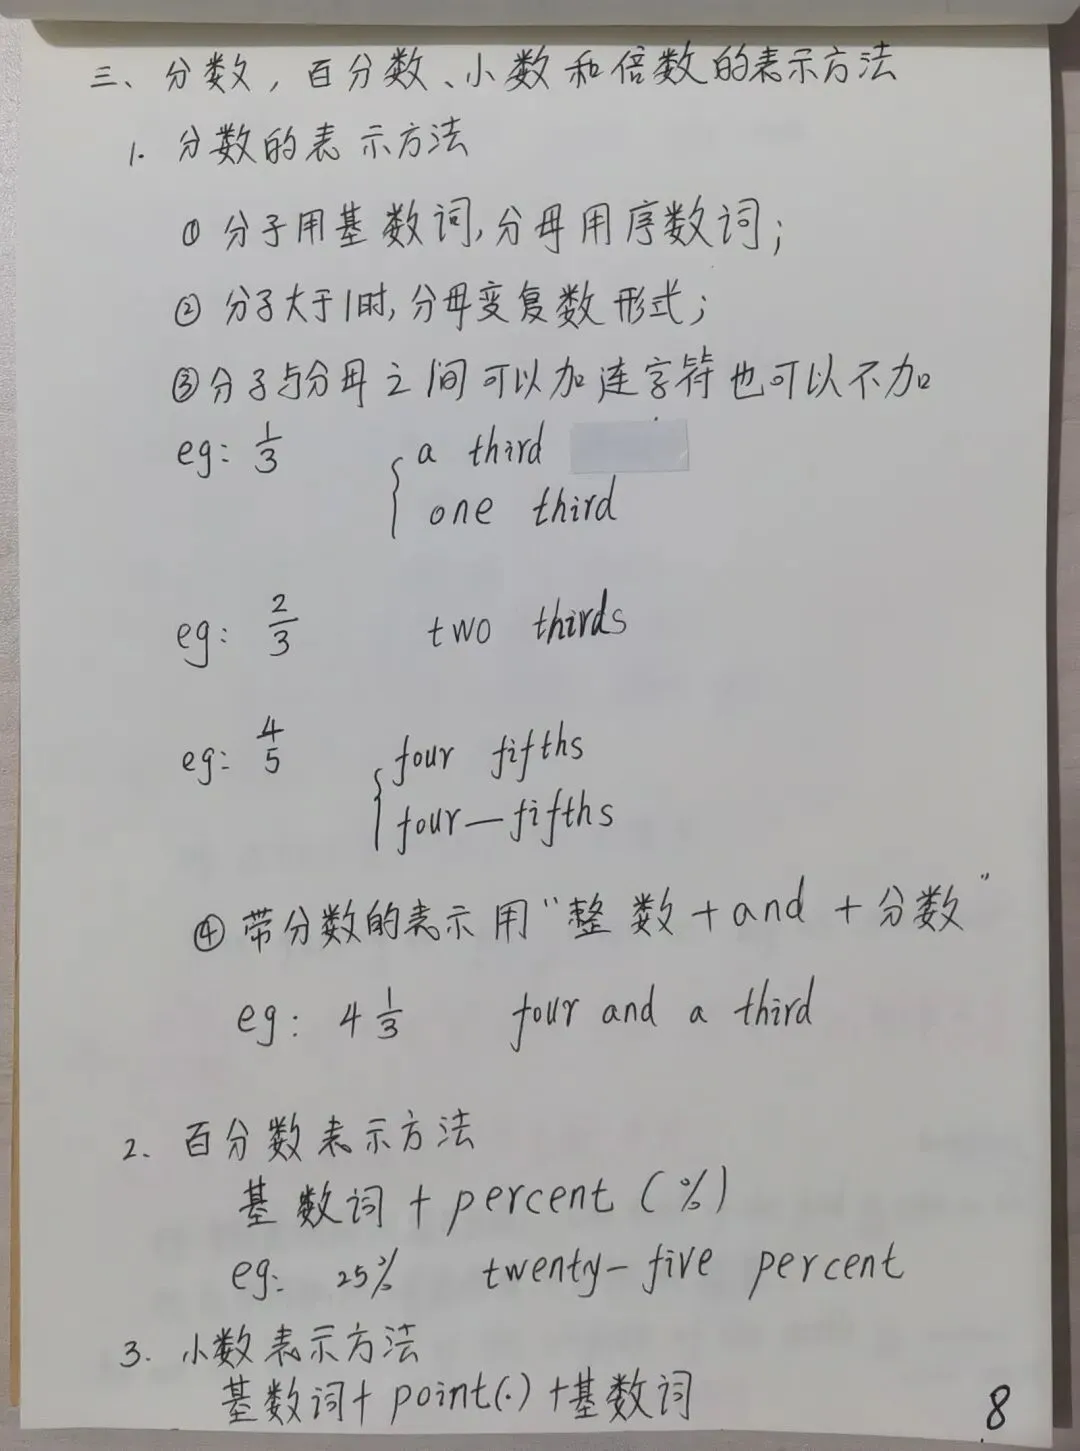 三、分数，百分数、小数和倍数的表示方法
1. 分数的表示方法
① 分子用基数词,分母用序数词;
② 分子大于1时,分母变复数形式;
③分子与分母之间可以加连字符也可以不加
eg: 1/3 { a third
one third
eg: 2/3 two thirds
eg: 4/5 { four fifths
four—fifths
④ 带分数的表示用“整数+and+分数”
eg: 4 1/3 four and a third
2. 百分数表示方法
基数词+percent(%)
eg: 25% twenty-five percent
3. 小数表示方法
基数词+point(.)+基数词
8